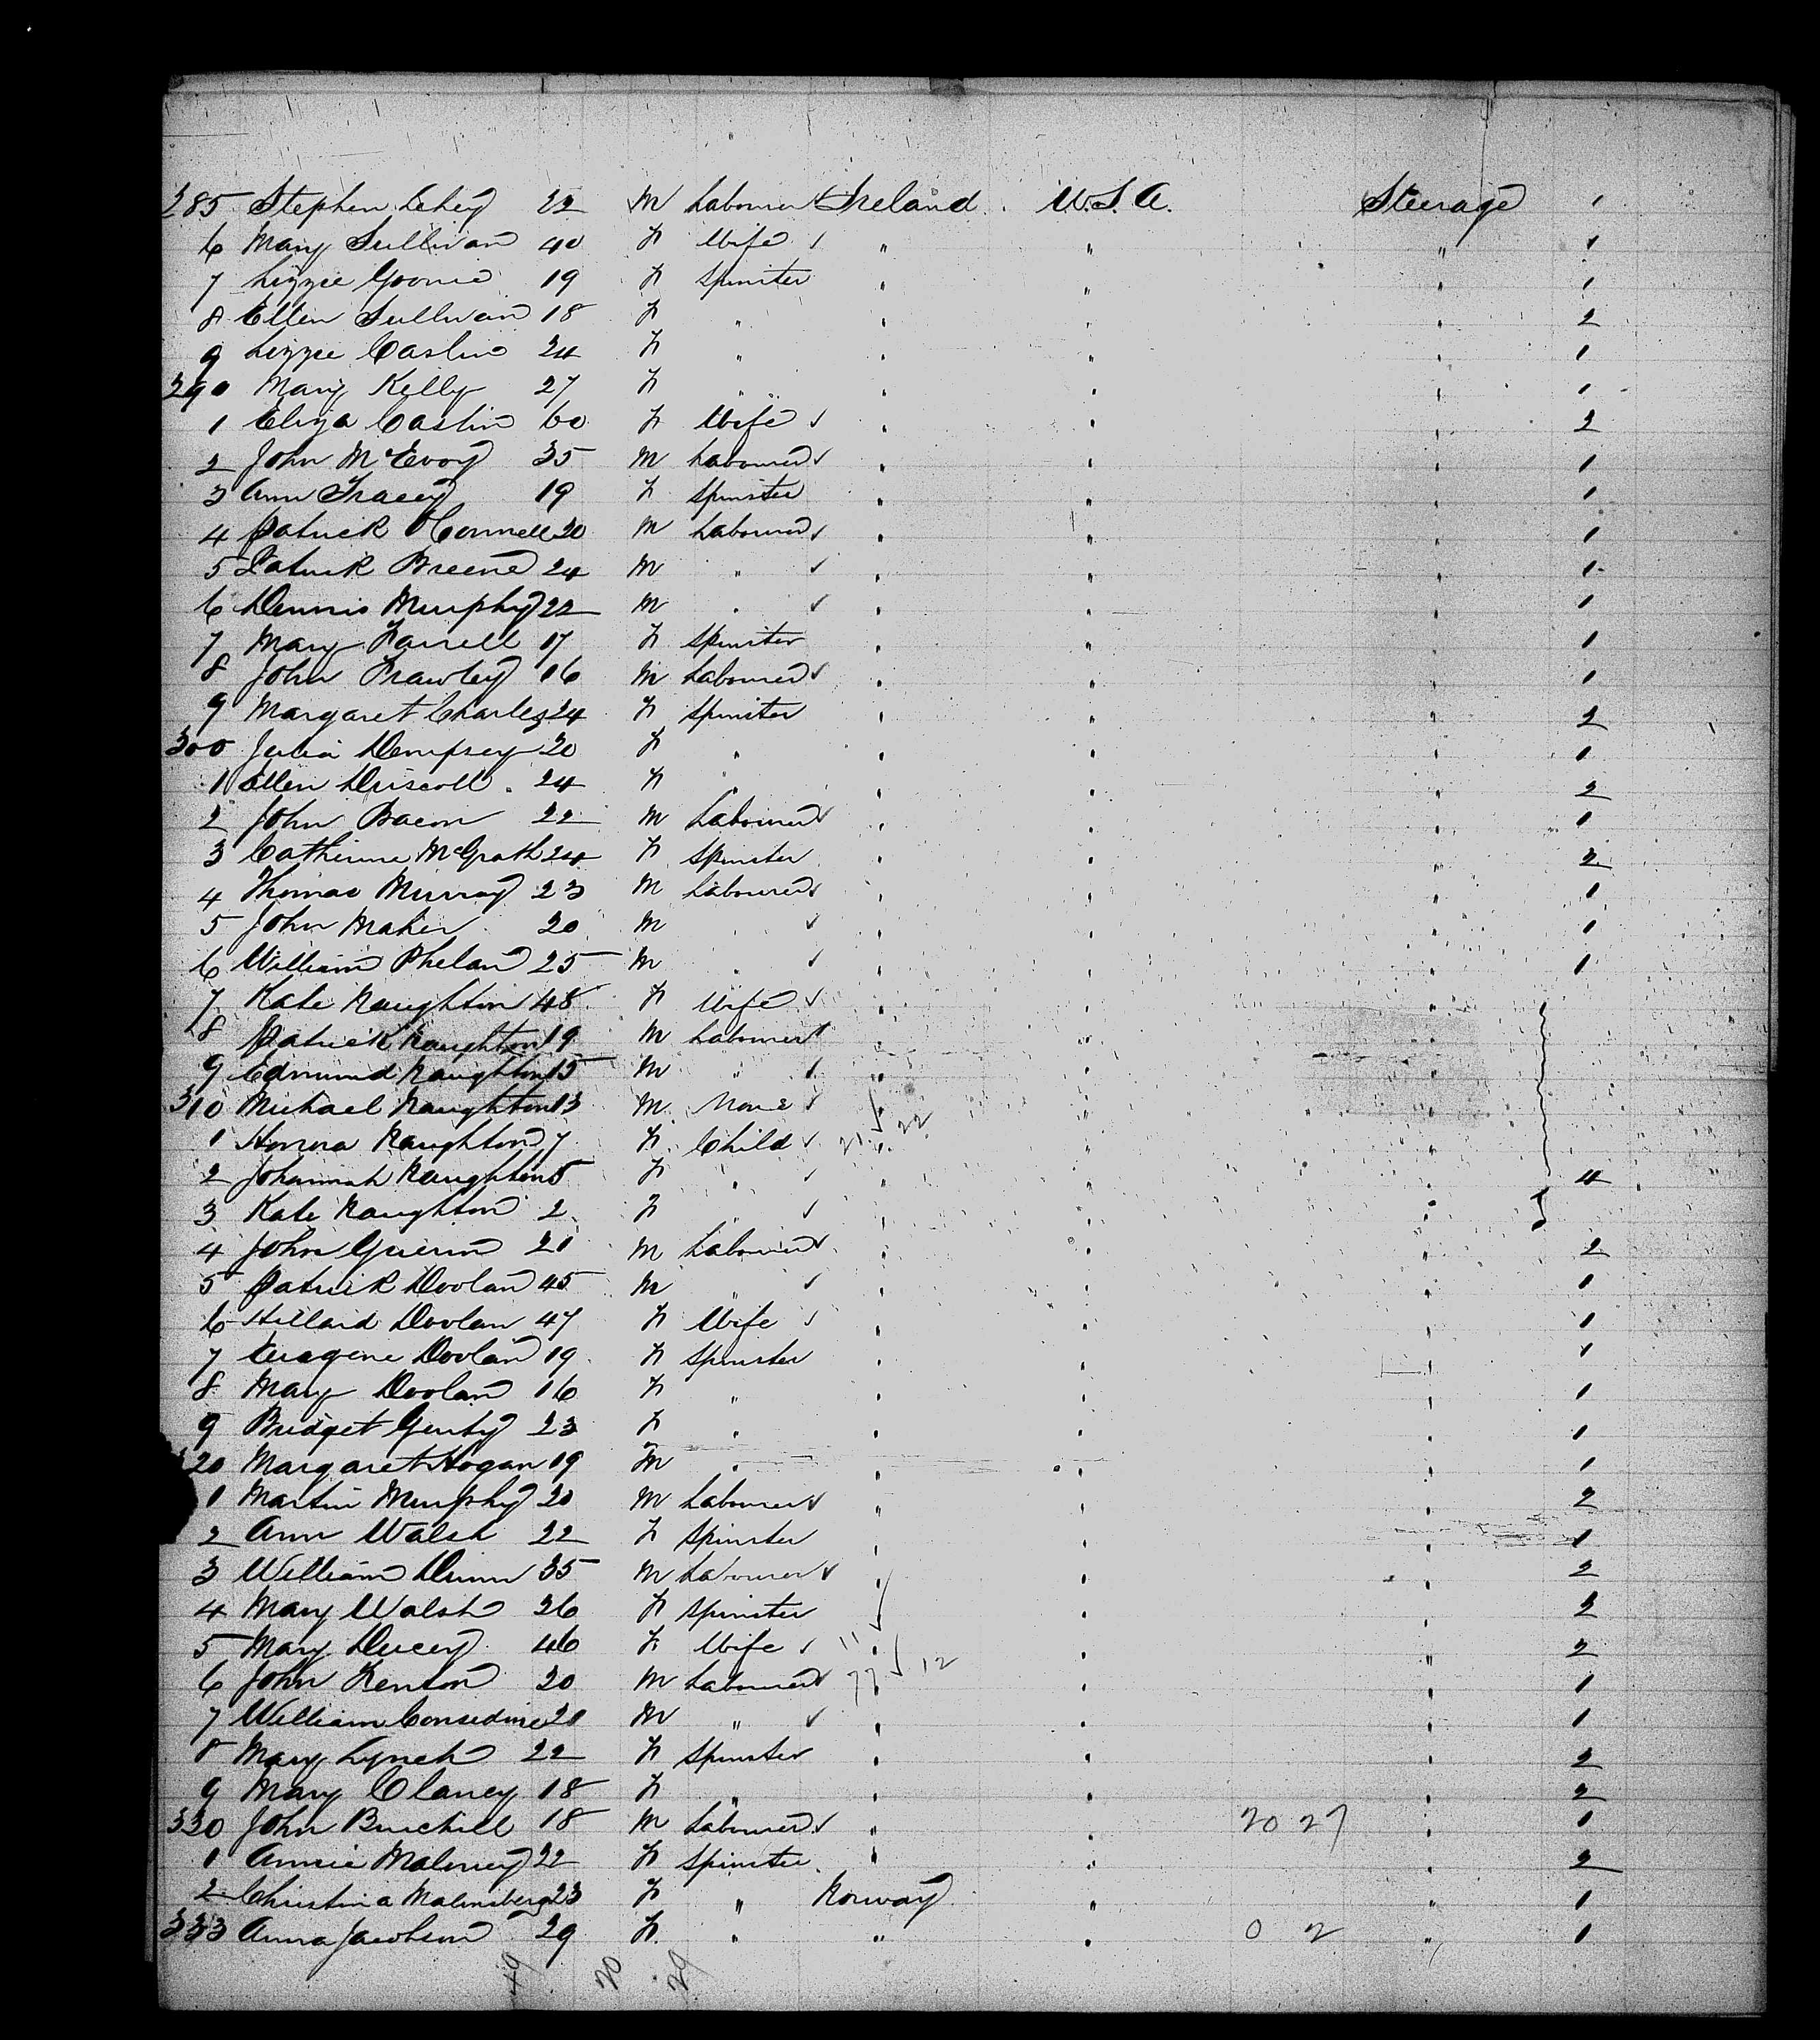 285 Stephen Lehey 22 M Labourer Ireland U.S.A. Steerage 1
6 Mary Sullivan 40 F Wife " " " 1
7 Lizzie 19 F Spinster " " " 1
8 Ellen Sullivan 18 F " " " " 2
9 Lizzie Caslin 24 F " " " " 1
290 Mary Kelly 27 F " " " " 1
1 Eliza Caslin 60 F Wife " " " 2
2 John McEvoy 35 M Labourer " " " 1
3 Ann Tracey 19 F Spinster " " " 1
4 Patrick O'Connell 20 M Labourer " " " 1
5 Patrick Breene 24 M " " " " 1
6 Dennis Murphy 22 M " " " " 1
7 Mary Farrell 17 F Spinster " " " 1
8 John Frawley 16 M Labourer " " " 1
9 Margaret Charles 24 F Spinster " " " 2
300 Julia Dempsey 20 F " " " " 1
1 Ellen Driscoll 24 F " " " " 2
2 John Bacon 22 M Labourer " " " 1
3 Catherine McGrath 24 F Spinster " " " 2
4 Thomas Murray 23 M Labourer " " " 1
5 John Maher 20 M " " " " 1
6 William Phelan 25 M " " " " 1
7 Kate Naughton 48 F Wife " " "
8 Patrick Naughton 19 M Labourer " " "
9 Edmund Naughton 15 M " " " "
310 Michael Naughton 13 M None " " "
1 Honora Naughton 7 F Child 21 " 22 " "
2 Johannah Naughton 5 F " " " " 4
3 Kate Naughton 2 F " " " "
4 John Guerin 21 M Labourer " " " 2
5 Patrick Doolan 45 M " " " " 1
6 Doolan 47 F Wife " " " 1
7 Euegene Doolan 19 F Spinster " " " 1
8 Mary Doolan 16 F " " " " 1
9 Bridget Genty 23 F " " " " 1
20 Margaret Hogan 19 M " " " " 1
1 Martin Murphy 20 M Labourer " " " 2
2 Ann Walsh 22 F Spinster " " " 1
3 William Dunn 35 M Labourer " " " 2
4 Mary Walsh 26 F Spinster " " 2
5 Mary Ducey 46 F Wife 11 " " " 2
6 John Fenton 20 M Labourer 77 " 12 " " 1
7 William Considine 21 M " " " " 1
8 Mary Lynch 22 F Spinster " " " 2
9 Mary Clancy 18 F " " " " 2
330 John Burchill 18 M Labourer " " 20 27 " 1
1 Annie Maloney 22 F Spinster " " " 2
2 Christina Malmsberg 23 F " Norway " " 1
333 Anna Jacobson 29 F " " " 0 2 " 1
49 20 29